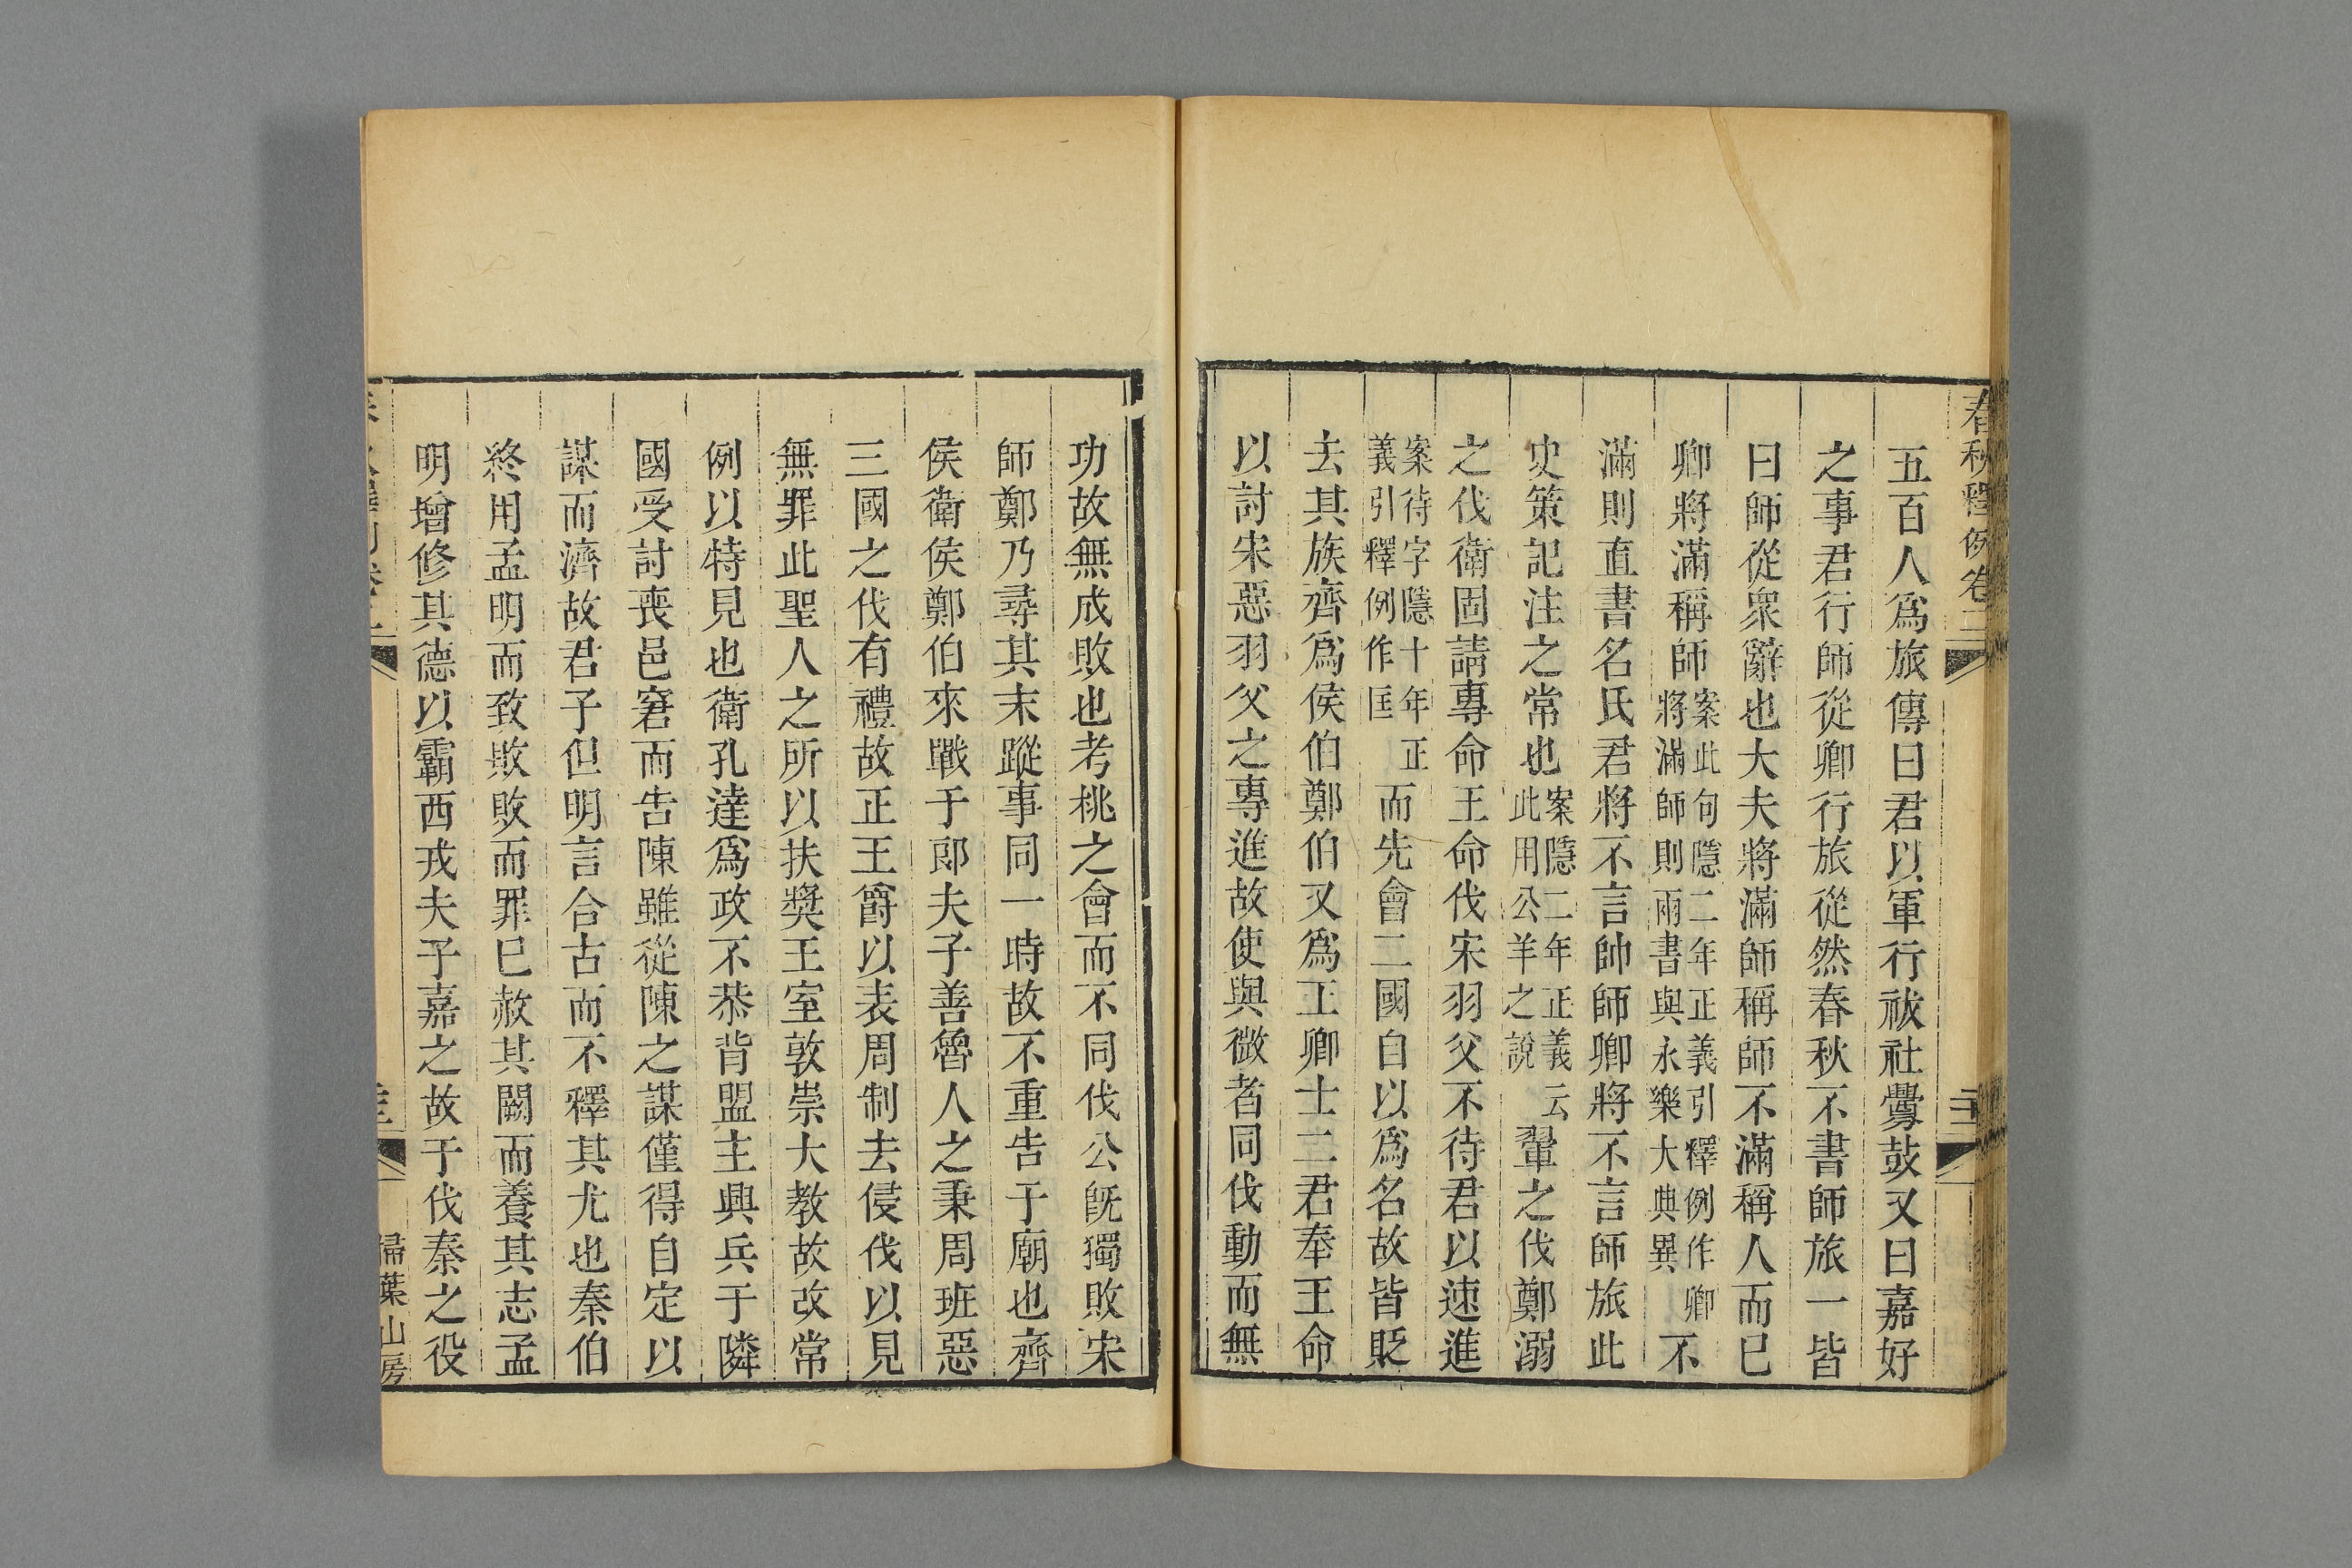 春秋釋例卷二
五百人爲旅傳曰君以軍行祓社釁鼓又曰嘉好
之事君行師從卿行旅從然春秋不書師旅一皆
曰師從衆辭也大夫將滿師稱師不滿稱人而已
卿將滿稱師案此句隱二年正義引釋例作卿將滿師則兩書與永樂大典異不
滿則直書名氏君將不言帥師卿將不言師旅此
史策記注之常也案隱二年正義云此用公羊之說翬之伐鄭溺
之伐衛固請專命王命伐宋羽父不待君以速進
案待字隱十年正義引釋例作匡而先會二國自以爲名故皆貶
去其族齊爲侯伯鄭伯又爲王卿士二君奉王命
以討宋惡羽父之專進故使與微者同伐動而無
功故無成敗也考桃之會而不同伐公旣獨敗宋
師鄭乃尋其末蹤事同一時故不重告于廟也齊
侯衛侯鄭伯來戰于郎夫子善魯人之秉周班惡
三國之伐有禮故正王爵以表周制去侵伐以見
無罪此聖人之所以扶獎王室敦崇大教故改常
例以特見也衛孔達爲政不恭背盟主興兵于隣
國受討喪邑窘而告陳雖從陳之謀僅得自定以
謀而濟故君子但明言合古而不釋其尤也秦伯
終用孟明而致敗敗而罪已赦其闕而養其志孟
明增修其德以霸西戎夫子嘉之故于伐秦之役
掃葉山房